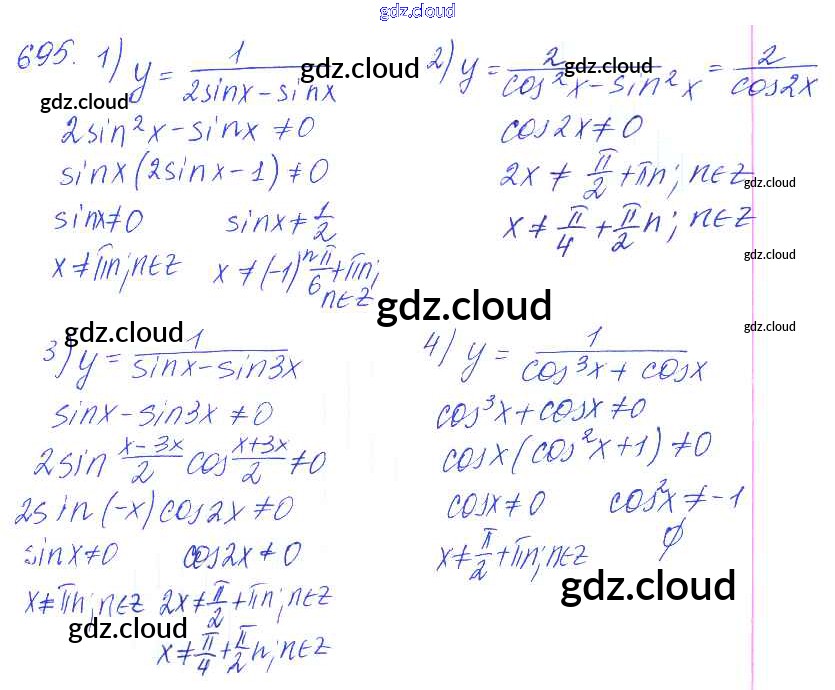 gdz.cloud
695. 1) y = 1/(2sinx - sinx)
gdz.cloud
gdz.cloud
2sin²x - sinx ≠ 0
sinx(2sinx - 1) ≠ 0
sinx ≠ 0 sinx ≠ 1/2
x ≠ πn; n∈Z x ≠ (-1)ⁿ π/6 + πn;
n∈Z
2) y = 2/(cos²x - sin²x) = 2/cos2x
gdz.cloud
gdz.cloud
cos2x ≠ 0
2x ≠ π/2 + πn; n∈Z
gdz.cloud
x ≠ π/4 + π/2 n; n∈Z
gdz.cloud
gdz.cloud
gdz.cloud
gdz.cloud
3) y = 1/(sinx - sin3x)
sinx - sin3x ≠ 0
2sin (x-3x)/2 cos (x+3x)/2 ≠ 0
2sin(-x)cos2x ≠ 0
sinx ≠ 0 cos2x ≠ 0
x ≠ πn; n∈Z 2x ≠ π/2 + πn; n∈Z
gdz.cloud
x ≠ π/4 + π/2 n; n∈Z
4) y = 1/(cos³x + cosx)
cos³x + cosx ≠ 0
cosx(cos²x + 1) ≠ 0
cosx ≠ 0 cos²x ≠ -1
x ≠ π/2 + πn; n∈Z ∅
gdz.cloud